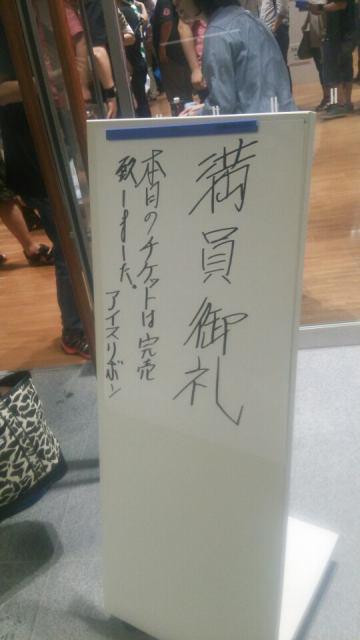 満員御礼
本日のチケットは完売
致しました。
アイスリボン